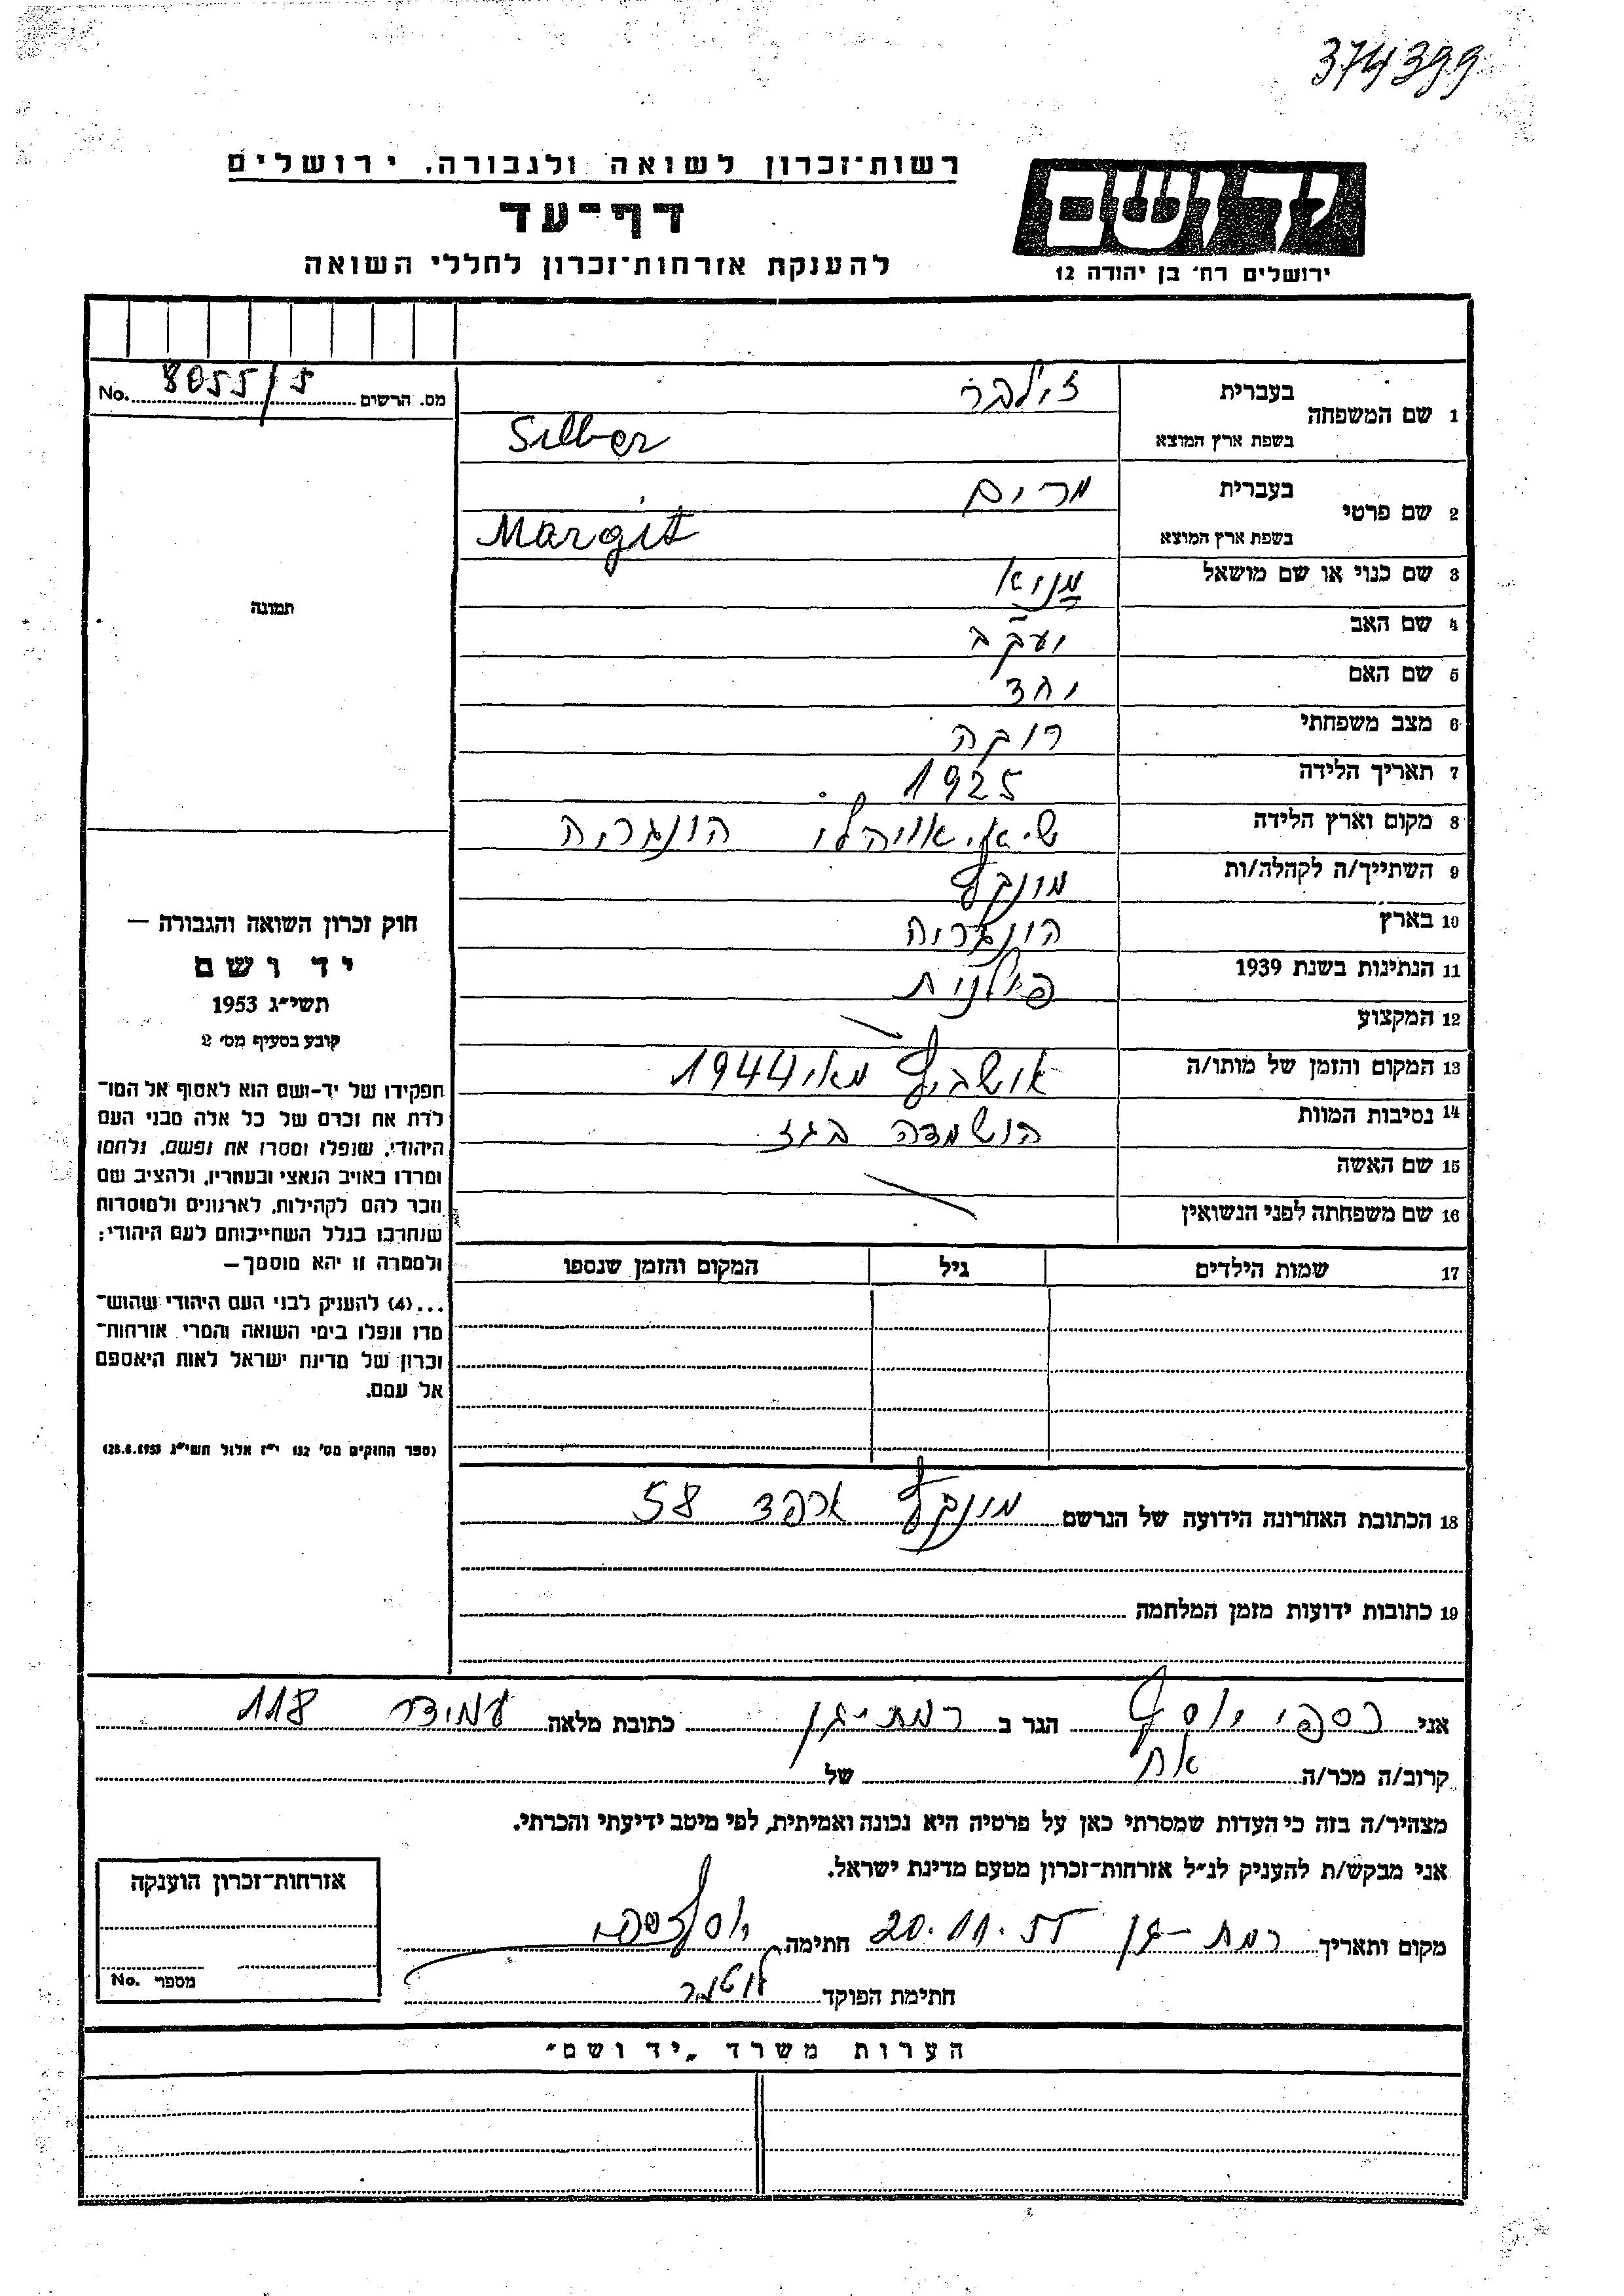 374399
רשות־זכרון לשואה ולגבורה, ירושלים
דף־עד
להענקת אזרחות־זכרון לחללי השואה
יד ושם
ירושלים רח׳ בן יהודה 12
מס. הרשים No. 8055/5
תמונה
1 שם המשפחה בעברית זילבר
בשפת ארץ המוצא Silber
2 שם פרטי בעברית מרים
בשפת ארץ המוצא Margit
3 שם כנוי או שם מושאל
4 שם האב יעקב
5 שם האם
6 מצב משפחתי רוקה
7 תאריך הלידה 1925
8 מקום וארץ הלידה הונגריה
9 השתייך/ה לקהלה/ות מונקץ
10 בארץ הונגריה
11 הנתינות בשנת 1939 פולנית
12 המקצוע
13 המקום והזמן של מותו/ה אושביץ מאי 1944
14 נסיבות המוות הושמדה בגז
15 שם האשה
16 שם משפחתה לפני הנשואין
17 שמות הילדים גיל המקום והזמן שנספו
18 הכתובת האחרונה הידועה של הנרשם מונקץ ארפד 58
19 כתובות ידועות מזמן המלחמה
חוק זכרון השואה והגבורה —
יד ושם
תשי״ג 1953
קובע בסעיף מס׳ 2
תפקידו של יד-ושם הוא לאסוף אל המו־
לדת את זכרם של כל אלה מבני העם
היהודי, שנפלו ומסרו את נפשם, נלחמו
ומרדו באויב הנאצי ובעוזריו, ולהציב שם
וזכר להם לקהילות, לארגונים ולמוסדות
שנחרבו בגלל השתייכותם לעם היהודי;
ולמטרה זו יהא מוסמך—
...(4) להעניק לבני העם היהודי שהוש־
מדו ונפלו בימי השואה והמרי אזרחות־
זכרון של מדינת ישראל לאות היאספם
אל עמם.
(ספר החוקים מס׳ 132 י״ז אלול תשי״ג 28.8.1953)
אני רספי יוסף הגר ב רמת-גן כתובת מלאה עמידר 118
קרוב/ה מכר/ה אח של
מצהיר/ה בזה כי העדות שמסרתי כאן על פרטיה היא נכונה ואמיתית, לפי מיטב ידיעתי והכרתי.
אני מבקש/ת להעניק לנ״ל אזרחות־זכרון מטעם מדינת ישראל.
מקום ותאריך רמת-גן 20.11.55 חתימה
חתימת הפוקד
אזרחות־זכרון הוענקה
מספר No.
הערות משרד „יד ושם״